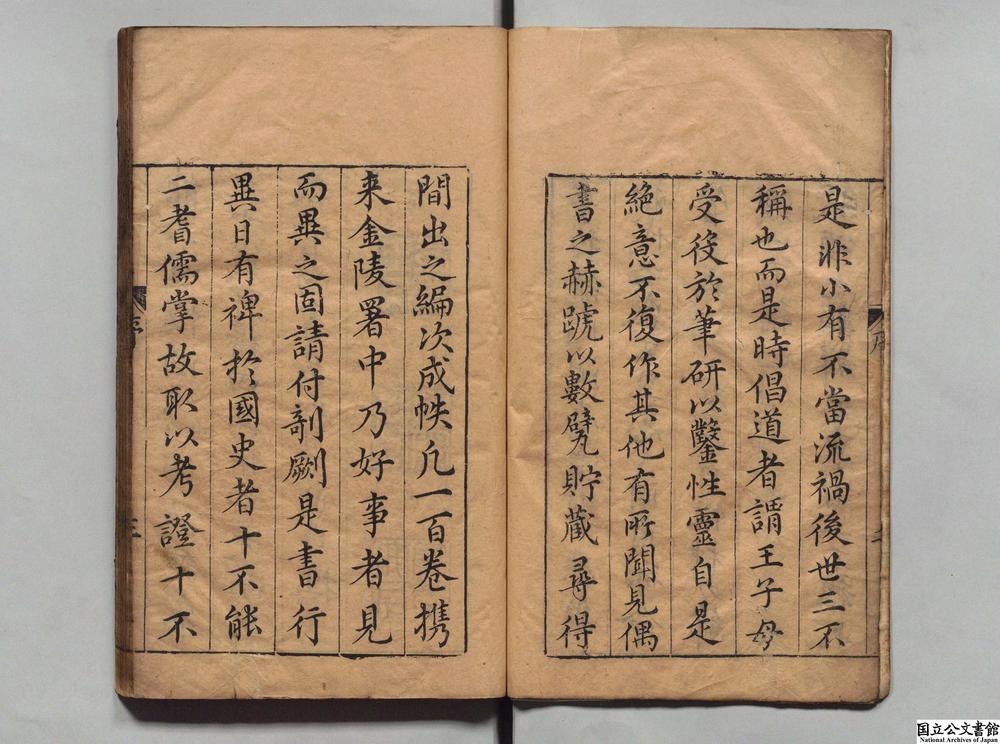 是非小有不當流禍後世三不
稱也而是時倡道者謂王子毋
受役於筆研以鑿性靈自是
絶意不復作其他有所聞見偶
書之赫蹏以數甓貯藏尋得
間出之編次成帙凡一百卷携
来金陵署中乃好事者見
而異之固請付剞劂是書行
異日有裨於國史者十不能
二耆儒掌故取以考證十不
序
国立公文書館
National Archives of Japan